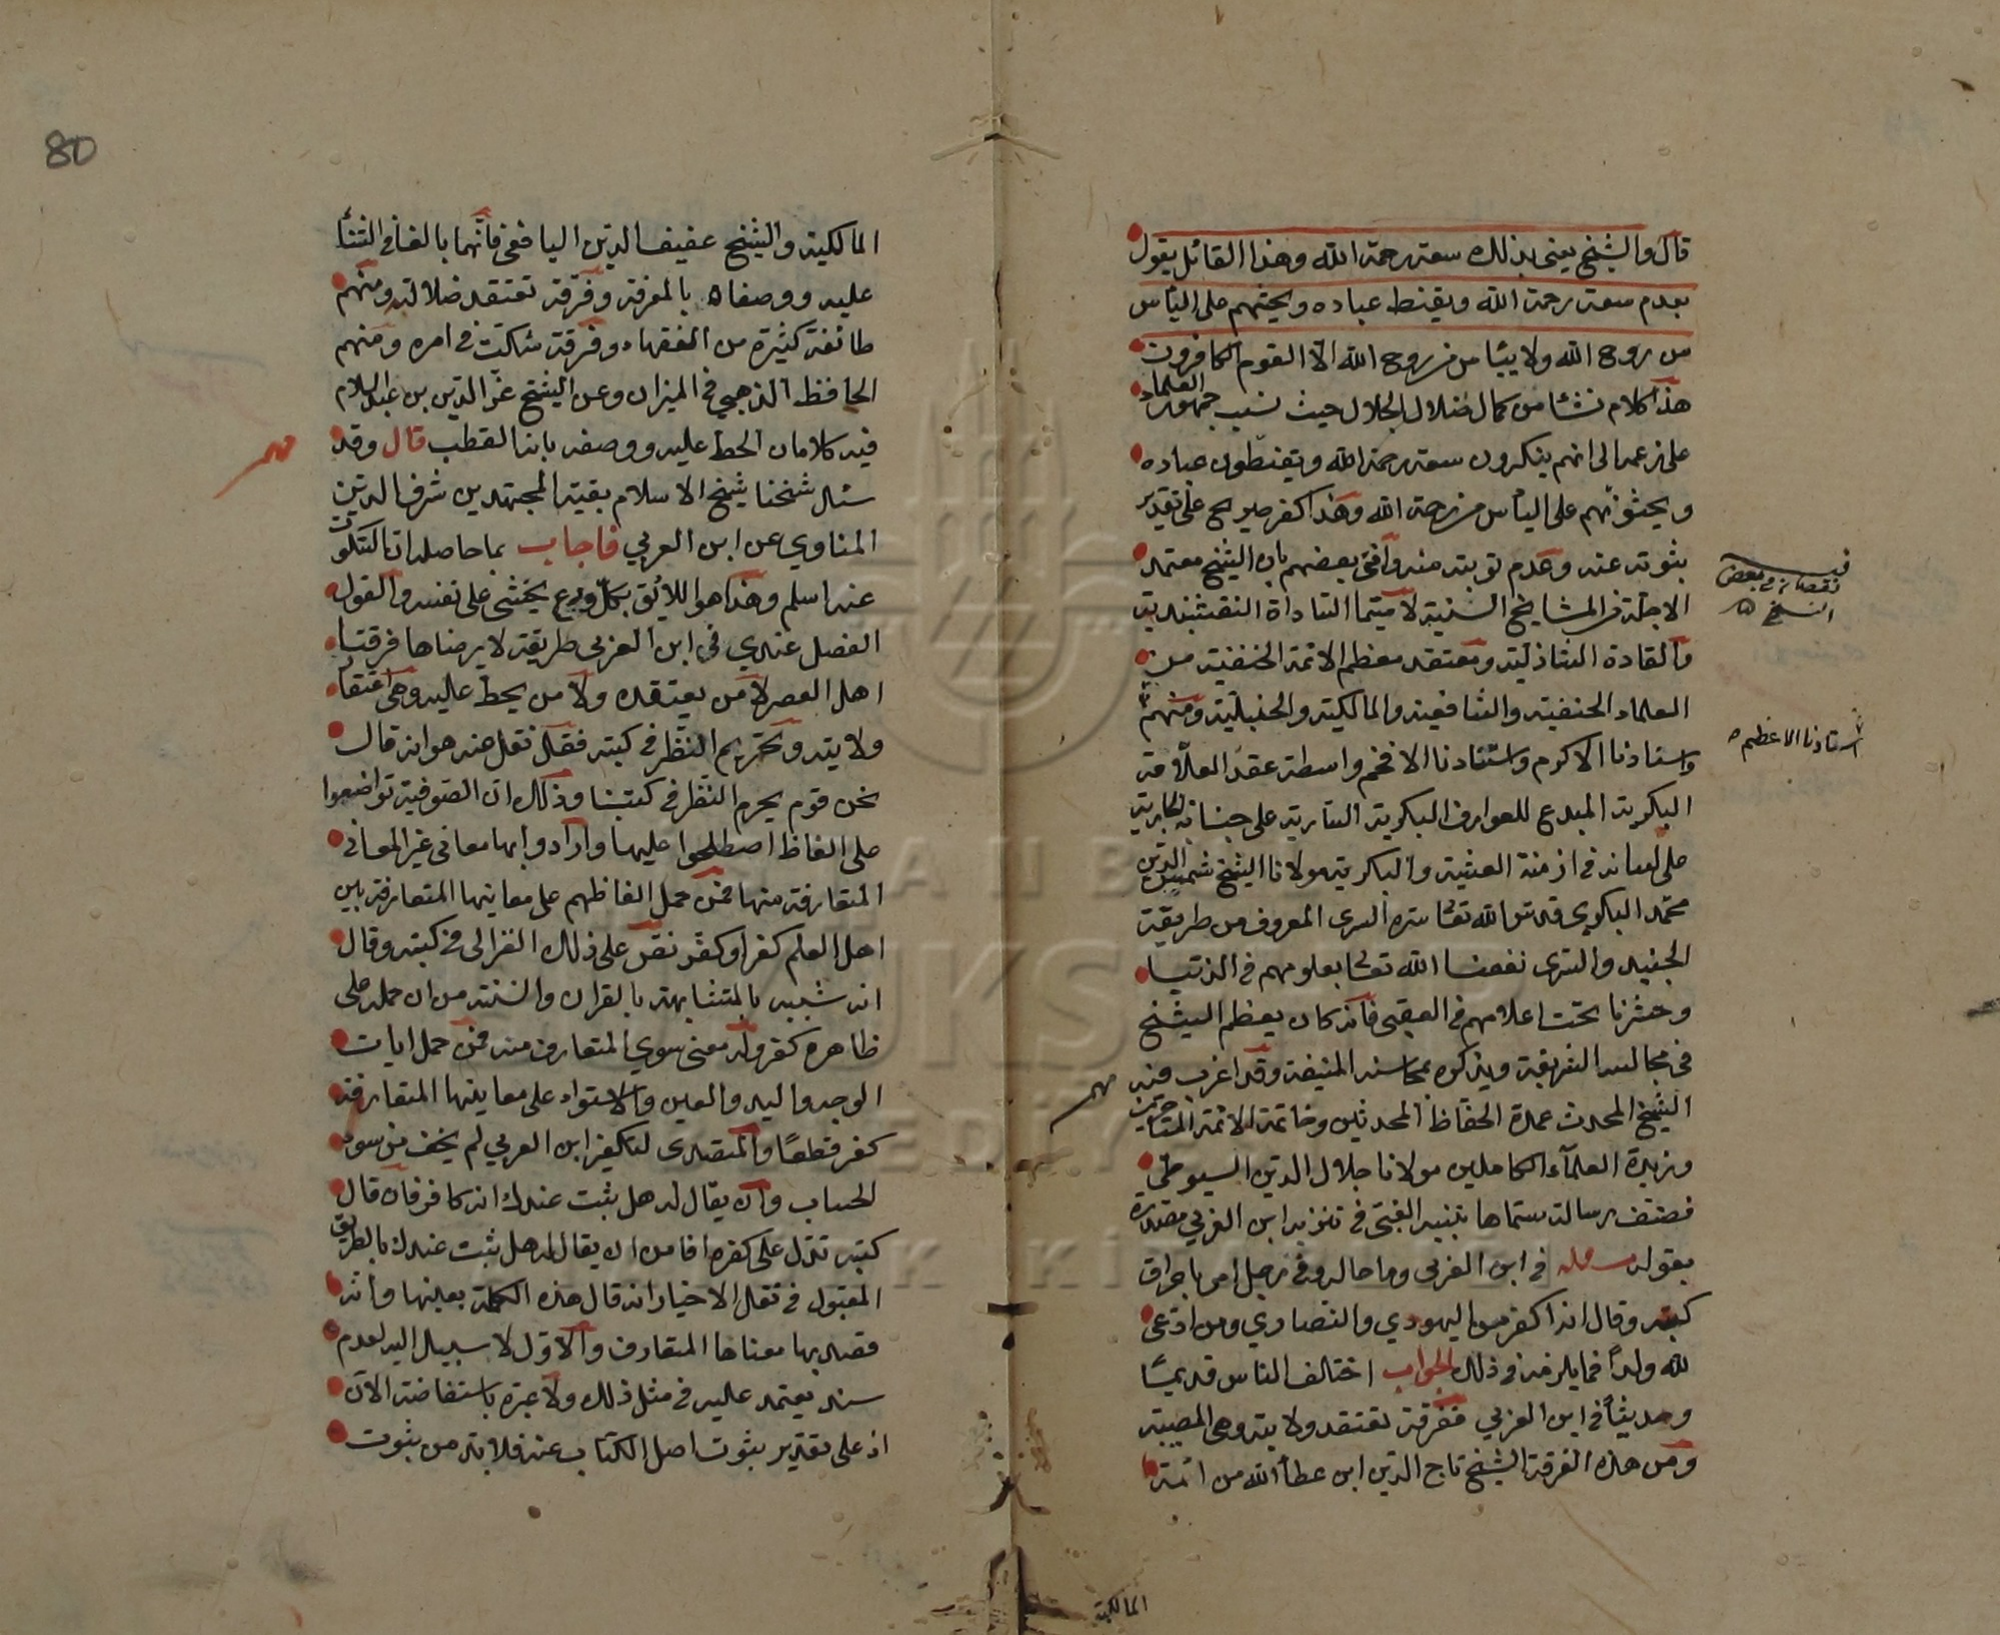 قال والشيخ يعني بذلك سعة رحمة الله وهذا القائل يقول
بعدم سعة رحمة الله ويقنط عباده ويحثهم على اليأس
من روح الله ولا ييأس من روح الله الا القوم الكافرون
هذا كلام نشأ من كمال ضلال الجلال حيث نسب جمهور العلماء
على زعمه الى انهم ينكرون سعة رحمة الله ويقنطون عباده
ويحثونهم على اليأس من رحمة الله وهذا كفر صريح على تقدير
ثبوته عنه وعدم توبته منه وافتى بعضهم بان الشيخ معتمد
الاجلة من المشايخ السنية لا سيما السادات النقشبندية
والقادة الشاذلية ومعتقد معظم الائمة الحنفية من
العلماء الحنفية والشافعية والمالكية والحنبلية ومنهم
واستاذنا الاكرم واستاذنا الافخم واسطة عقد العلاقة
البكرية المبدع للعوارف البكرية السارية على جنانه الجارية
على لسانه في ازمنة العشية والبكرية مولانا الشيخ شمس الدين
محمد البكري قدس الله تعالى سره السرى المعروف من طريقة
الجنيد والسرى نفعنا الله تعالى بعلومهم في الدنيا
وحشرنا تحت اعلامهم في العقبى فانه كان يعظم الشيخ
في مجالسه الشريفة ويذكره بمحاسنه المنيفة وقد اغرب منه
الشيخ المحدث عمدة الحفاظ المحدثين وخاتمة الائمة المتأخرين
وزبدة العلماء الكاملين مولانا جلال الدين السيوطي
فصنف رسالة سماها بتنبيه الغبي في تنزيه ابن العربي مصدرة
بقوله مسئلة في ابن العربي وما حاله وفي رجل امر باحراق
كتبه وقال انه اكفر من اليهودي والنصاري ومن ادعى
لله ولدا فما يلزمه في ذلك الجواب اختالف الناس قديمًا
وحديثًا في ابن العربي ففرقة تعتقد ولايته وهي المصيبة
ومن هذه الفرقة الشيخ تاج الدين ابن عطأ الله من ائمة
نقصان في بعض
النسخ
استاذنا الاعظم
مهم
المالكية
80
المالكية والشيخ عفيف الدين اليافعي فانهما بالغا في الثناء
عليه ووصفاه بالمعرفة وفرقة تعتقد ضلالته ومنهم
طائفة كثيرة من الفقهاء وفرقة شكت في امره ومنهم
الحافظ الذهبي في الميزان وعن الشيخ عز الدين بن عبد السلام
فيه كلامان الحط عليه ووصفه بانه القطب قال وقد
سئل شيخنا شيخ الاسلام بقية المجتهدين شرف الدين
المناوي عن ابن العربي فاجاب بما حاصله ان السكوت
عنه اسلم وهذا هو اللائق بكل ورع يخشى على نفسه والقول
الفصل عندي في ابن العربي طريقة لا يرضاها فرقتا
اهل العصر لا من يعتقده ولا من يحط عليه وهي اعتقاد
ولايته وتحريم النظر في كتبه فقد نقل عنه هو انه قال
نحن قوم يحرم النظر في كتبنا وذلك ان الصوفية تواضعوا
على الفاظ اصطلحوا عليها وارادوا بها معاني غير المعاني
المتعارفة منها فمن حمل الفاظهم على معاينها المتعارفة بين
اهل العلم كفر او كفر نص على ذلك الغزالى في كتبه وقال
انه شبيه بالمتشابهة بالقران والسنة من ان حمله على
ظاهره كفر وله معنى سوي المتعارف منه فمن حمل ايات
الوجه واليد والعين والاستواء على معاينها المتعارفة
كفر قطعًا والمتصدى لتكفير ابن العربي لم يخف من سوء
الحساب وان يقال له هل ثبت عندك انه كافر فان قال
كتبه تدل على كفره افامن ان يقال له هل ثبت عندك بالطريق
المقبول في نقل الاخبار انه قال هذه الكلمة بعينها وانه
قصد بها معناها المتعارف والاول لا سبيل اليه لعدم
سند يعتمد عليه في مثل ذلك ولا عبرة باستفاضة الآن
اذ على تقدير ثبوت اصل الكتاب عنه فلا بد من ثبوت
مهم